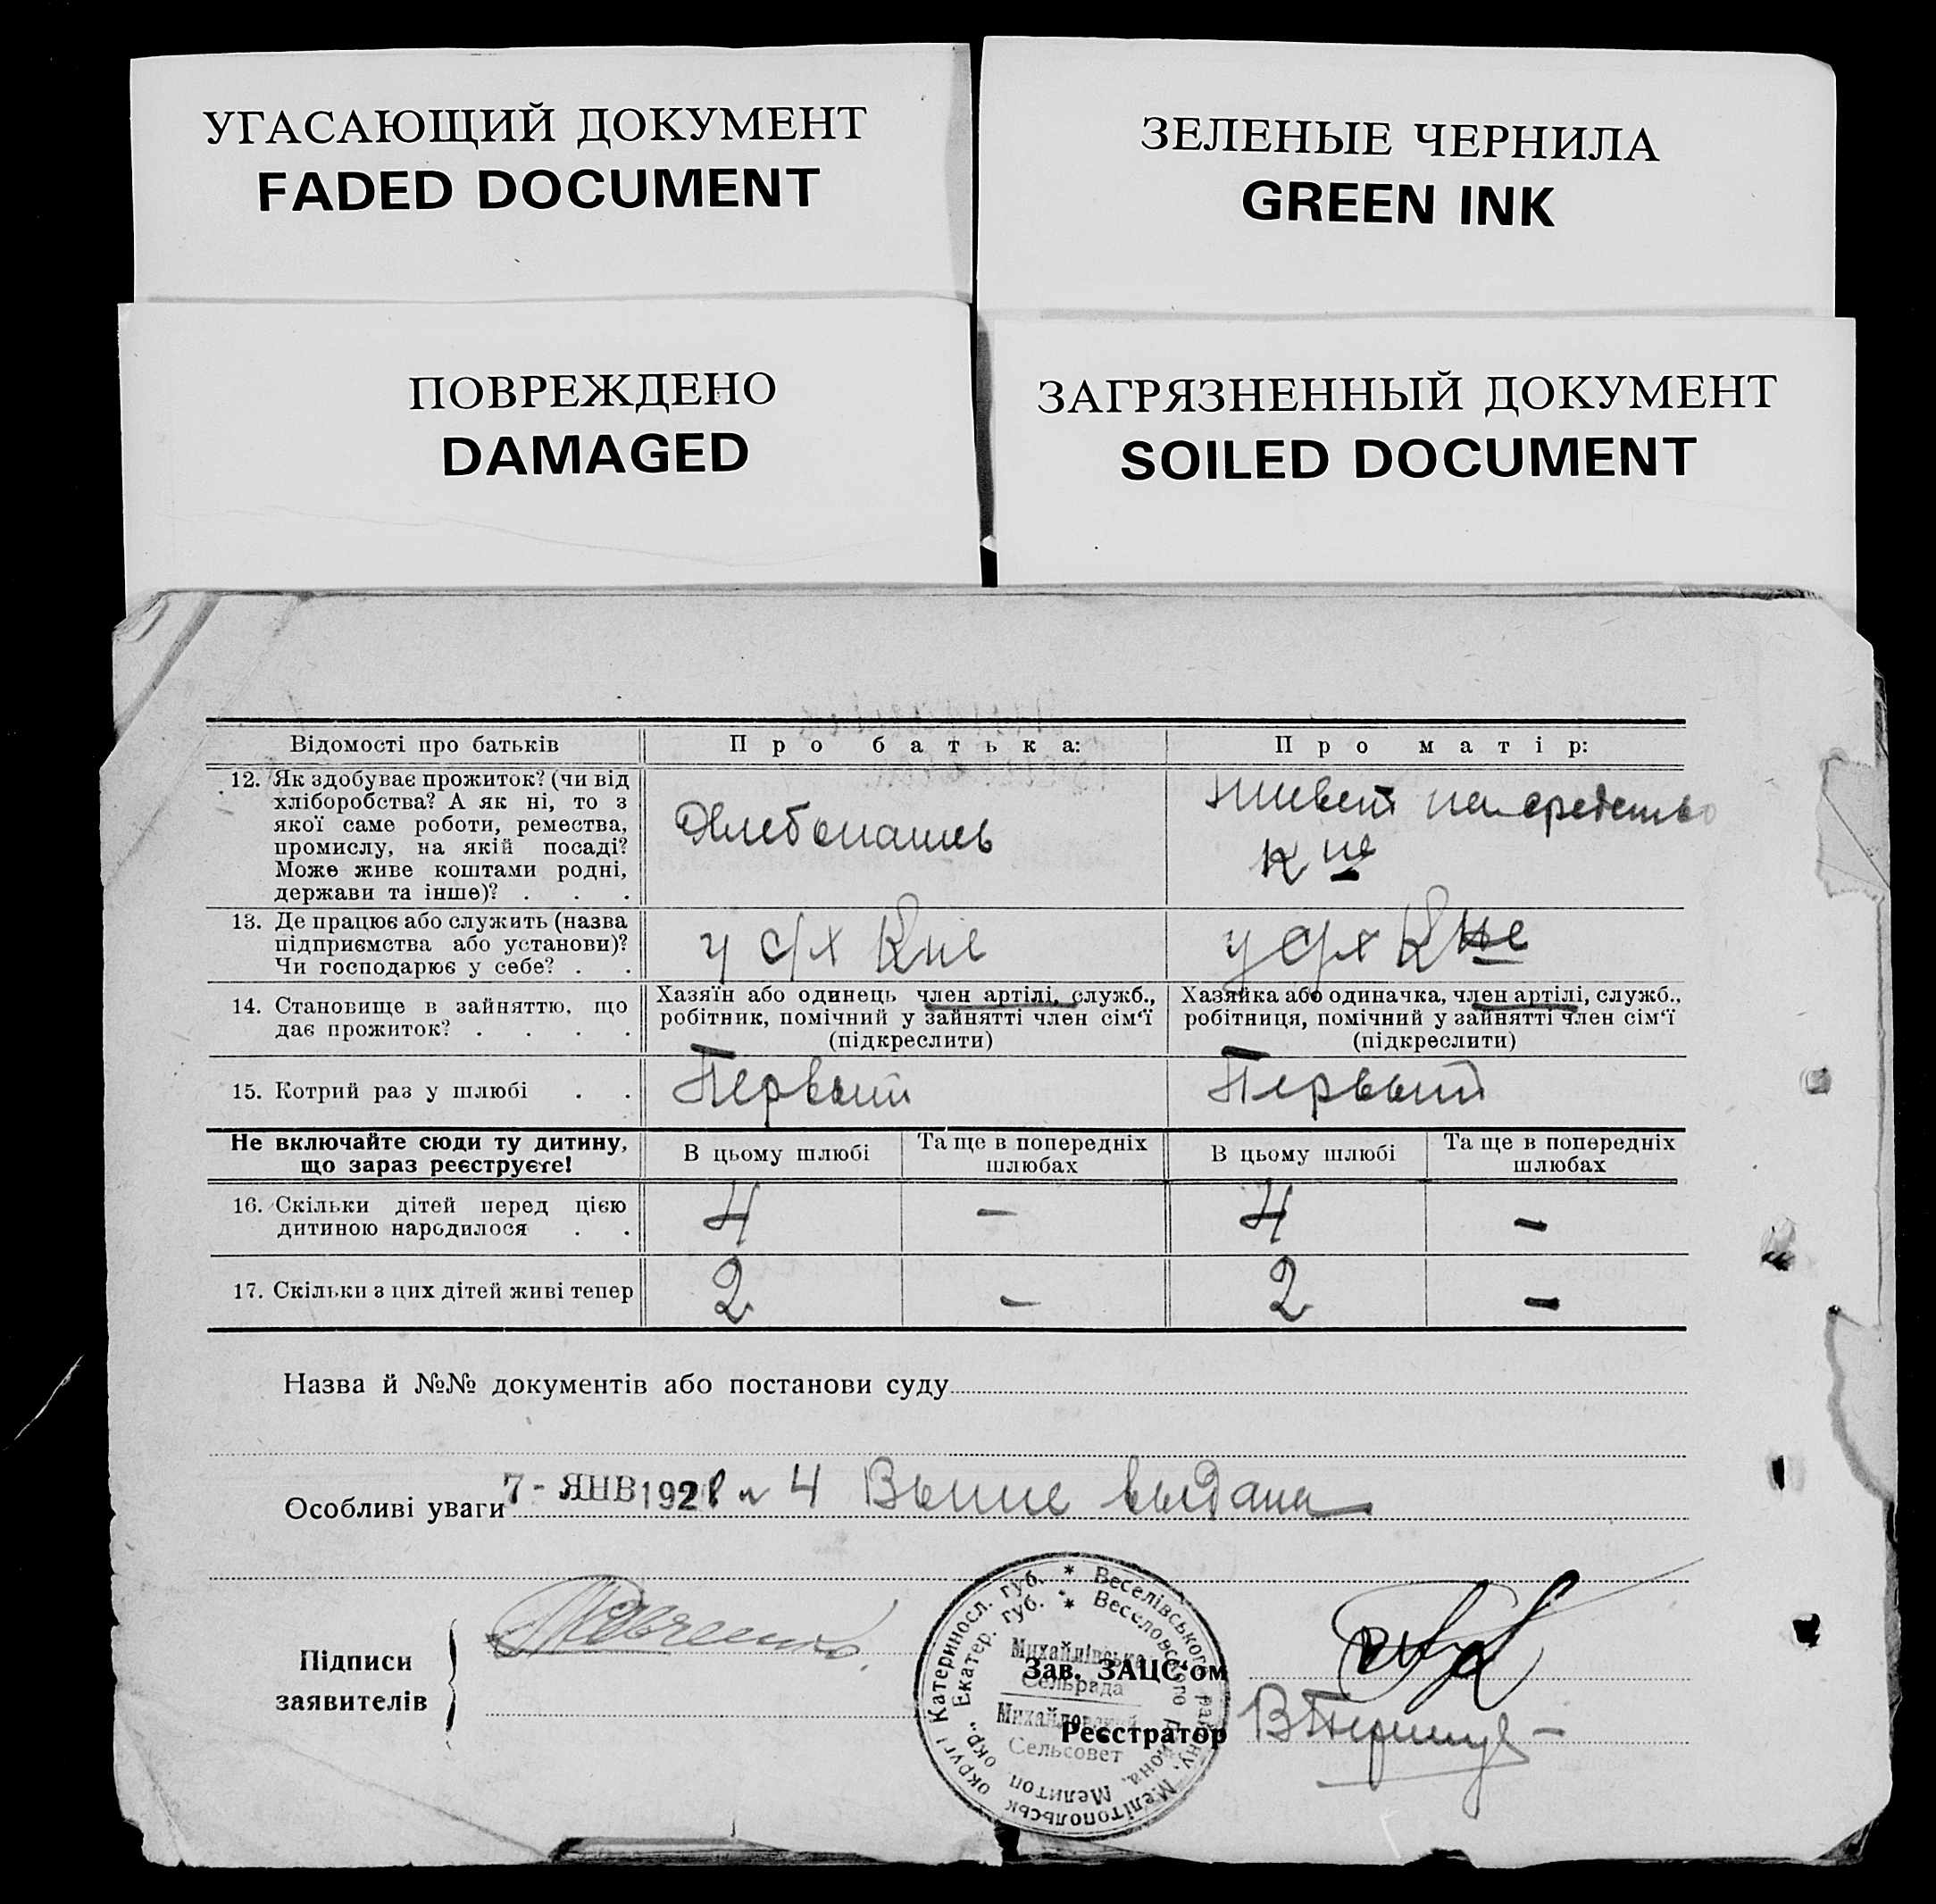 УГАСАЮЩИЙ ДОКУМЕНТ
FADED DOCUMENT
ЗЕЛЕНЫЕ ЧЕРНИЛА
GREEN INK
ПОВРЕЖДЕНО
DAMAGED
ЗАГРЯЗНЕННЫЙ ДОКУМЕНТ
SOILED DOCUMENT
Відомості про батьків
Про батька:
Про матір:
12. Як здобуває прожиток? (чи від
хліборобства? А як ні, то з
якої саме роботи, ремества,
промислу, на якій посаді?
Може живе коштами родні,
держави та інше)? . . .
Хлебопашев
живет на средство
13. Де працює або служить (назва
підприємства або установи)?
Чи господарює у себе? . .
у с/х
у с/х
14. Становище в зайняттю, що
дає прожиток? . . . .
Хазяїн або одинець член артілі, служб.,
робітник, помічний у зайнятті член сім'ї
(підкреслити)
Хазяйка або одиначка, член артілі, служб.,
робітниця, помічний у зайнятті член сім'ї
(підкреслити)
15. Котрий раз у шлюбі . .
Первый
Первый
Не включайте сюди ту дитину,
що зараз реєструєте!
В цьому шлюбі
Та ще в попередніх
шлюбах
В цьому шлюбі
Та ще в попередніх
шлюбах
16. Скільки дітей перед цією
дитиною народилося . .
4
—
4
—
17. Скільки з цих дітей живі тепер
2
—
2
—
Назва й №№ документів або постанови суду
Особливі уваги 7- ЯНВ 1928 4 выдана
Підписи
заявителів
Зав. ЗАЦС'ом
Реєстратор
Катериносл. губ. * Веселівського району, Мелітопольськ округі
Екатер. губ. * Веселовского района, Мелитоп. окр.
Михайлівська
Сельрада
Михайловский
Сельсовет